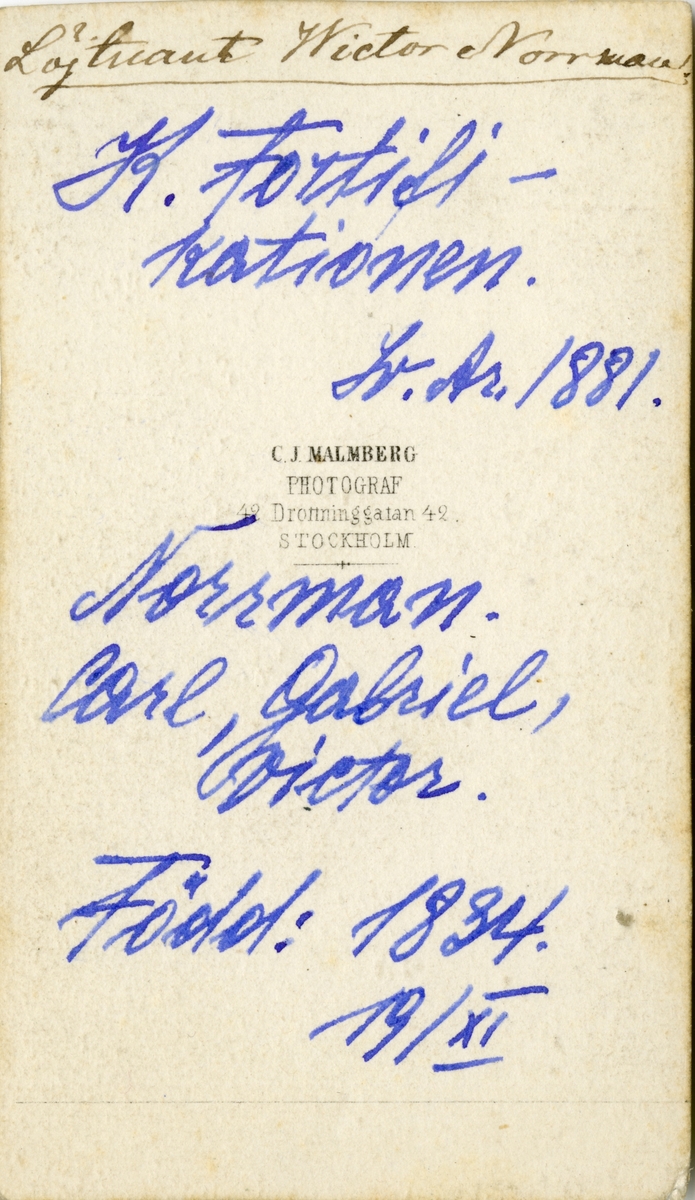 Löjtnant Wictor Norrman.
K. Fortifi-
kationen.
Sv. Ar. 1881.
C. J. MALMBERG
PHOTOGRAF
42 Drottninggatan 42.
STOCKHOLM
Norrman.
Carl, Gabriel,
Victor.
Född: 1834.
19/XI